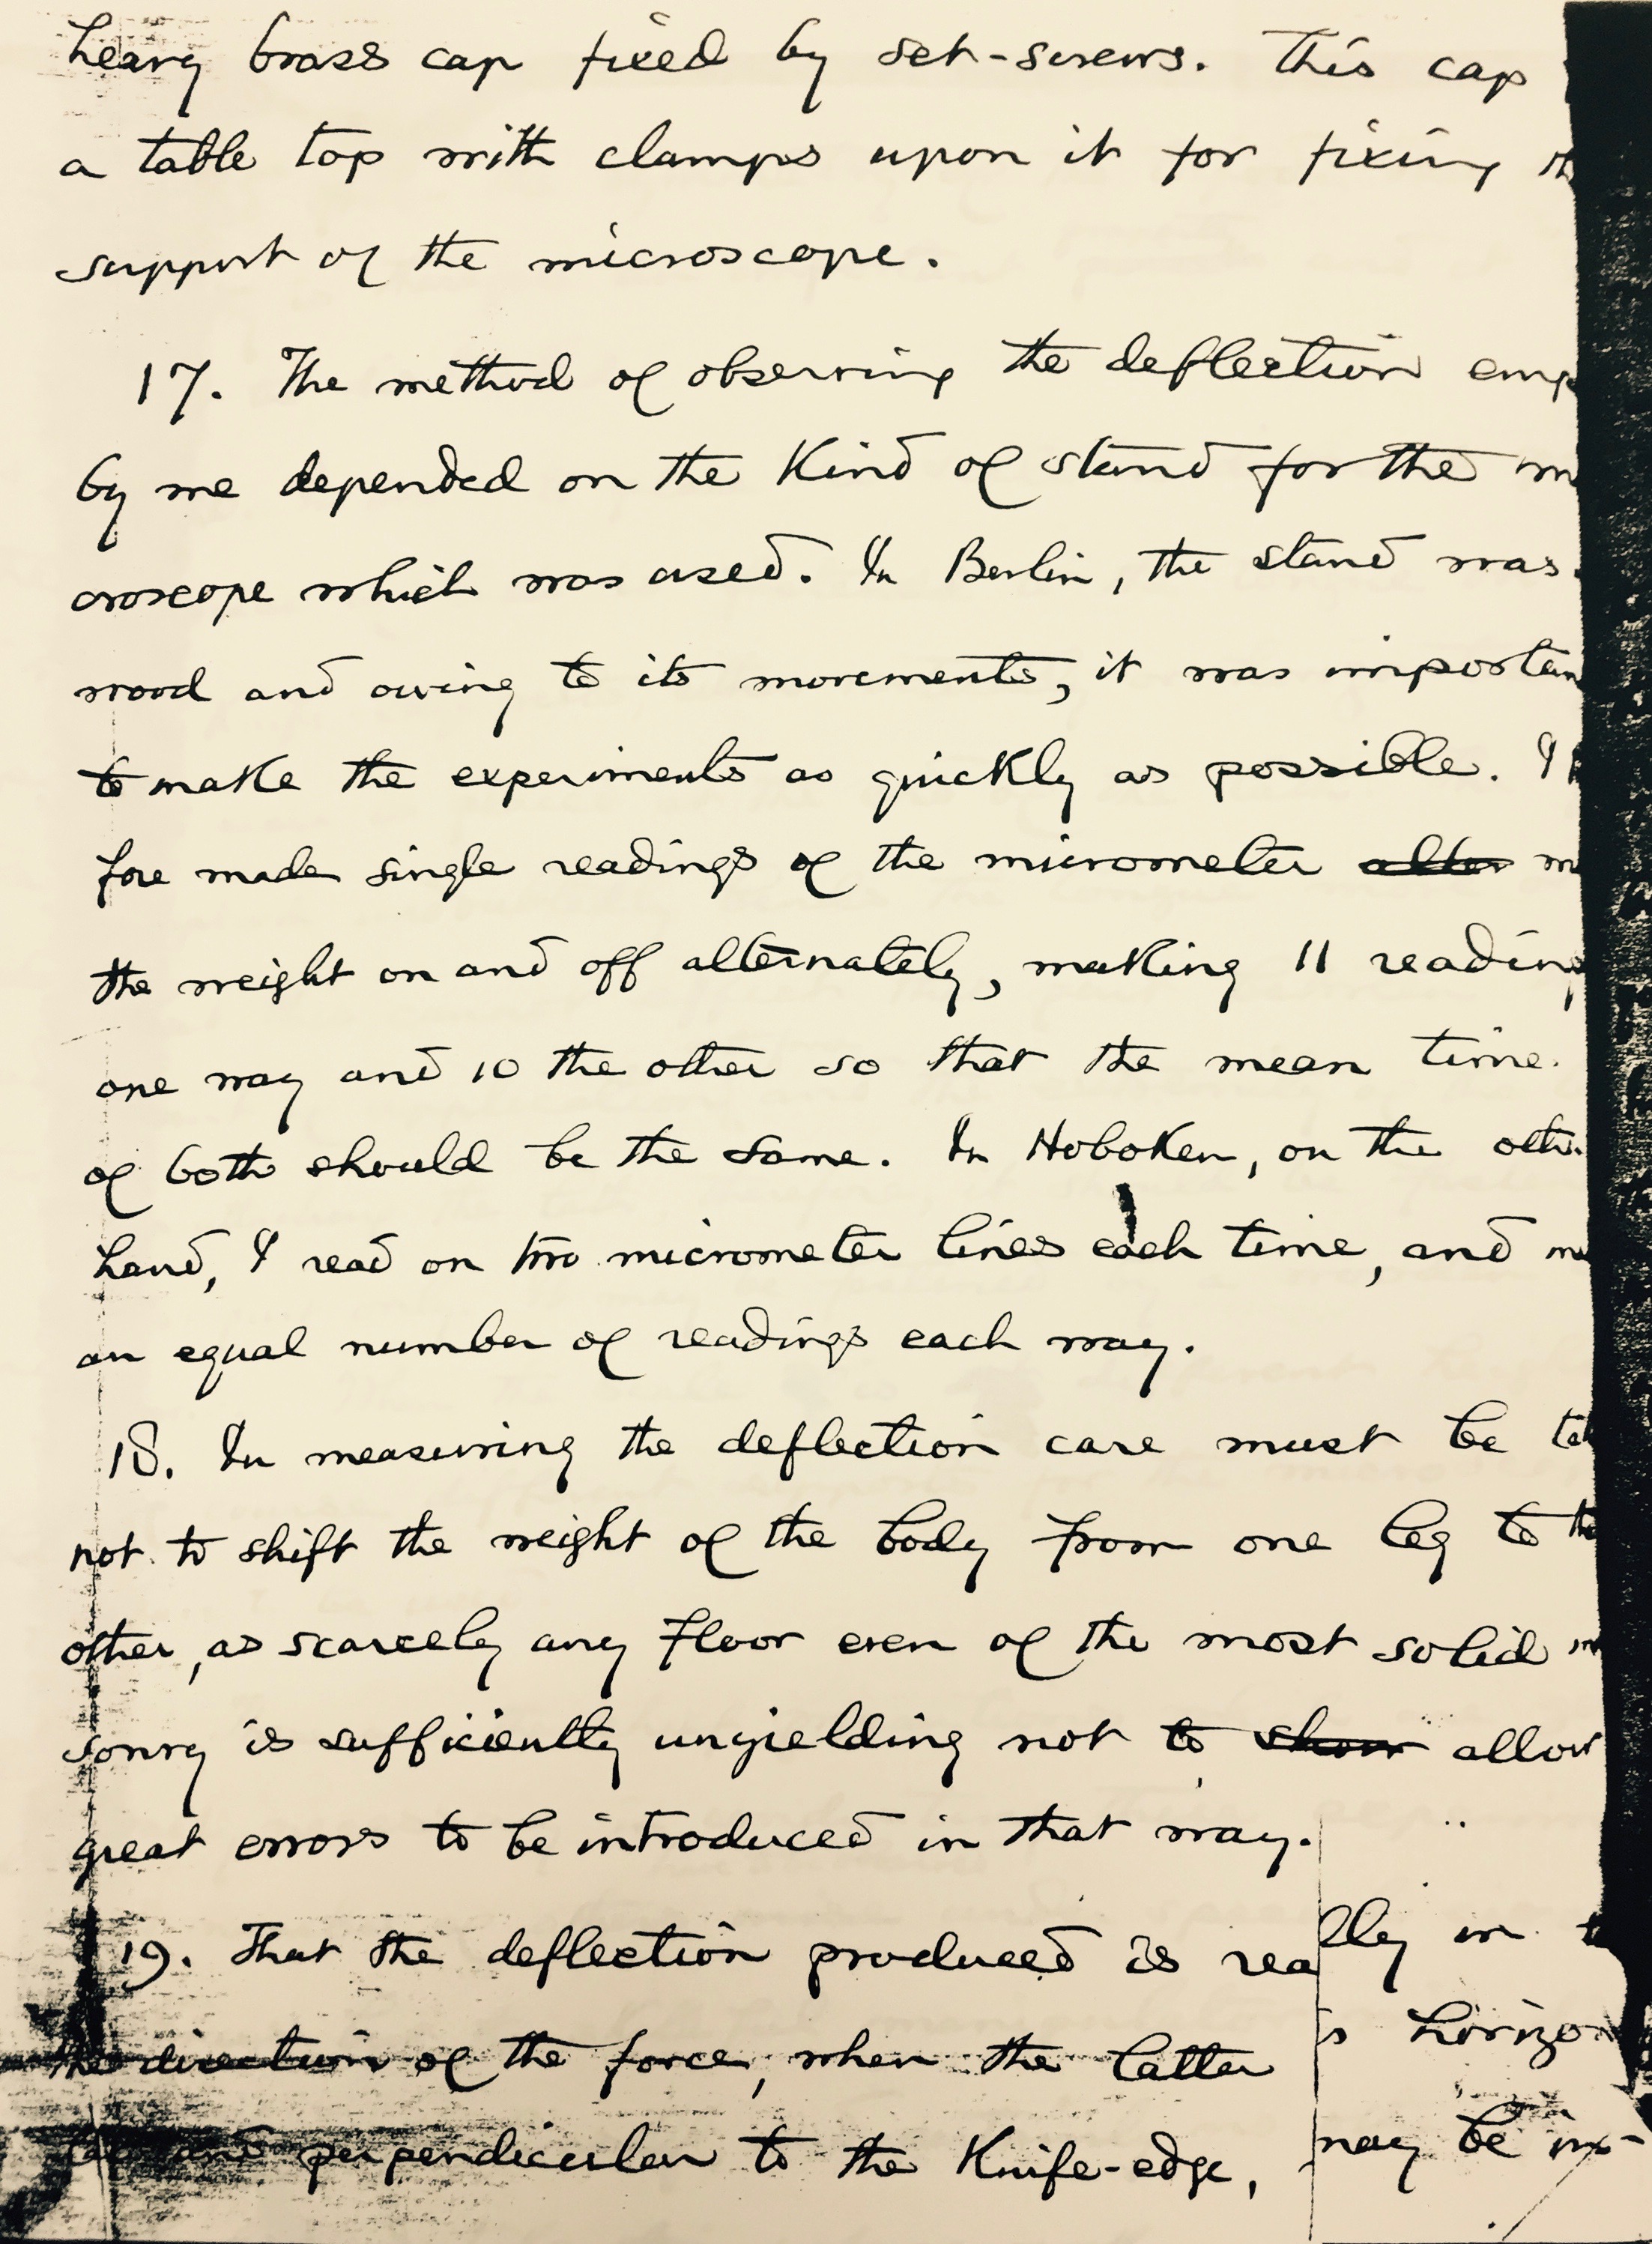 heavy brass cap fixed by set-screws. This cap
a table top with clamps upon it for fixing th
support of the microscope.
17. The method of observing the deflection emp
by me depended on the Kind of stand for the m
croscope which was used. In Berlin, the stand was
wood and owing to its movements, it was importan
to make the experiments as quickly as possible. I
fore made single readings of the micrometer alter
the weight on and off alternately, making 11 reading
one way and 10 the other so that the mean time
of both should be the same. In Hoboken, on the oth
hand, I read on two micrometer lines each time, and m
an equal number of readings each way.
18. In measuring the deflection care must be ta
not to shift the weight of the body from one leg to the
other, as scarcely any floor even of the most solid m
sonry is sufficiently unyielding not to show allow
great errors to be introduced in that way.
19. That the deflection produced is really in t
the direction of the force, when the latter is horizon
tal and perpendicular to the Knife-edge, may be in-